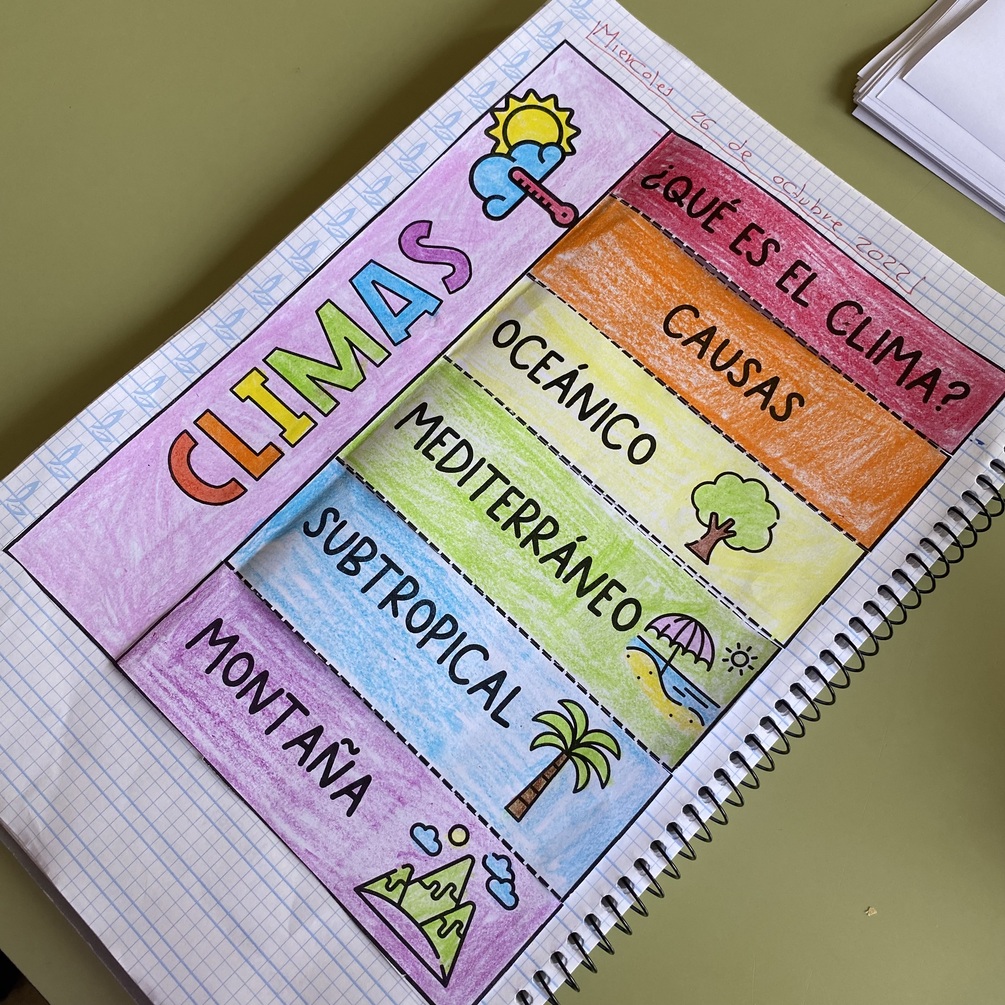 Miercoles 26 de octubre 2022
CLIMAS
¿QUÉ ES EL CLIMA?
CAUSAS
OCEÁNICO
MEDITERRÁNEO
SUBTROPICAL
MONTAÑA